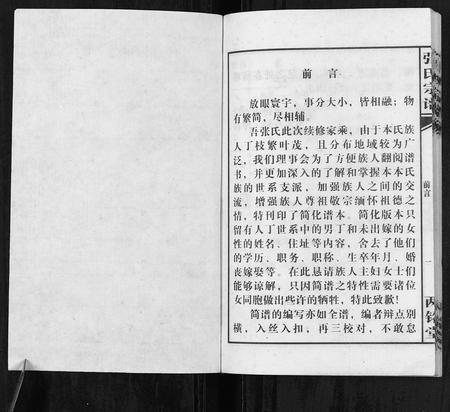 前言
放眼寰宇，事分大小，皆相融；物
有繁简，尽相辅。
吾张氏此次续修家乘，由于本氏族
人丁枝繁叶茂，且分布地域较为广
泛，我们理事会为了方便族人翻阅谱
书，并更加深入的了解和掌握本本氏
族的世系支派，加强族人之间的交
流，增强族人尊祖敬宗缅怀祖德之
情，特刊印了简化谱本。简化版本只
留有人丁世系中的男丁和未出嫁的女
性的姓名、住址等内容，舍去了他们
的学历、职务、职称、生卒年月、婚
丧嫁娶等。在此恳请族人主妇女士们
能够谅解，只因简谱之特性需要诸位
女同胞做出些许的牺牲，特此致歉！
简谱的编写亦如全谱，编者辩点别
横，入丝入扣，再三校对，不敢怠
张氏宗谱
前言
一
两铭堂